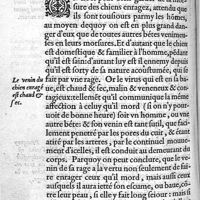 sure des chiens enragez, attendu qu'ils
sont tousiours parmy les hõmes,
au moyen dequoy on est en plus grand dan-
ger d'eux que de toutes autres bestes venimeu-
ses en leurs morsures. Et d'autant que le chien
est domestique & familier à l'homme, pédant
qu'il est sain: d'autant luy est ennemy depuis
qu'il est sorty de sa nature acoustumée, qui se
fait par vne rage.
Or le virus qui est en la ba-
ue, est chaud & sec, malin & veneneux & con-
tagieux: tellemét qu'il communique la mesme
affection à celuy qu'il mord (si on n'y pour-
uoit de bonne heure) soit vn homme, ou vne
autre beste: & son venin est tant subtil, que fa-
cilement penetre par les pores du cuir, & est
atti-
ré par les arteres, & par le continuel mouue-
ment d'icelles, il est conduit au demourant du
corps. Parquoy on peut conclure, que le ve-
nin de sa rage a la vertu non seulement de fai-
re enrager ceux qu'il mord, mais aussi ceux
ausquels il aura ietté son escume, ou baue,
chose, si elle y fait long seiour: mais si
Le venin du
chien enragé
est chaud &
sec.